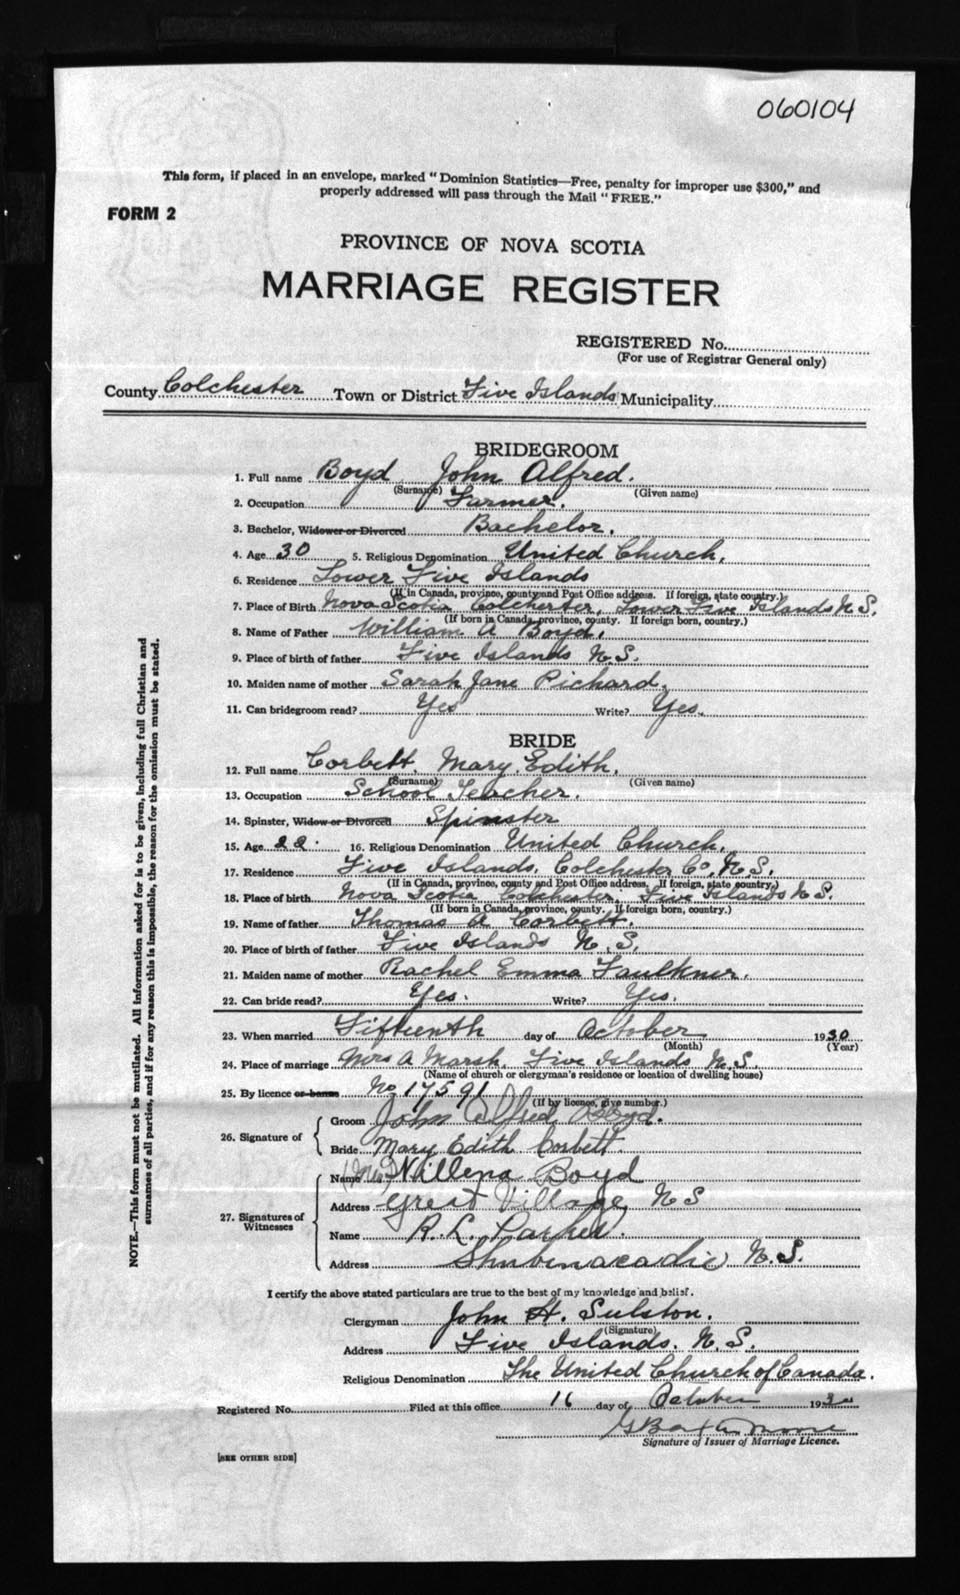 060104
This form, if placed in an envelope, marked "Dominion Statistics—Free, penalty for improper use $300," and
properly addressed will pass through the Mail "FREE."
FORM 2
PROVINCE OF NOVA SCOTIA
MARRIAGE REGISTER
REGISTERED No.
(For use of Registrar General only)
County Colchester Town or District Five Islands Municipality
BRIDEGROOM
1. Full name Boyd John Alfred.
(Surname) (Given name)
2. Occupation Farmer.
3. Bachelor, Widower or Divorced Bachelor.
4. Age 30 5. Religious Denomination United Church.
6. Residence Lower Five Islands
(If in Canada, province, county and Post Office address. If foreign, state country.)
7. Place of Birth Nova Scotia Colchester, Lower Five Islands N.S.
(If born in Canada, province, county. If foreign born, country.)
8. Name of Father William A Boyd.
9. Place of birth of father Five Islands N.S.
10. Maiden name of mother Sarah Jane Pichard.
11. Can bridegroom read? Yes Write? Yes.
BRIDE
12. Full name Corbett. Mary Edith.
(Surname) (Given name)
13. Occupation School Teacher.
14. Spinster, Widow or Divorced Spinster
15. Age 22. 16. Religious Denomination United Church.
17. Residence Five Islands, Colchester Co. N.S.
(If in Canada, province, county and Post Office address. If foreign, state country.)
18. Place of birth Nova Scotia Colchester Five Islands N.S.
(If born in Canada, province, county. If foreign born, country.)
19. Name of father Thomas A Corbett.
20. Place of birth of father Five Islands N.S.
21. Maiden name of mother Rachel Emma Faulkner.
22. Can bride read? Yes. Write? Yes.
23. When married Fifteenth day of October 1930
(Month) (Year)
24. Place of marriage Mrs A Marsh, Five Islands N.S.
(Name of church or clergyman's residence or location of dwelling house)
25. By licence or banns No 17591
(If by licence, give number.)
26. Signature of
Groom John Alfred Boyd.
Bride Mary Edith Corbett.
27. Signatures of Witnesses
Name (Mrs) Willena Boyd
Address Great Village, N S
Name R. L. Parker.
Address Shubenacadie N.S.
I certify the above stated particulars are true to the best of my knowledge and belief.
Clergyman John H. Sulston.
(Signature)
Address Five Islands. N.S.
Religious Denomination The United Church of Canada.
Registered No. Filed at this office 16 day of October 1930
Signature of Issuer of Marriage Licence.
[SEE OTHER SIDE]
NOTE.—This form must not be mutilated. All information asked for is to be given, including full Christian and
surnames of all parties, and if for any reason this is impossible, the reason for the omission must be stated.